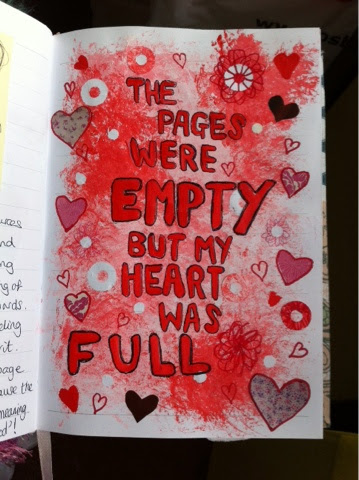 THE
PAGES
WERE
EMPTY
BUT MY
HEART
WAS
FULL
was
nd
ng
ng of
nds.
eling
vit.
page
ause the
meaning
ed"!